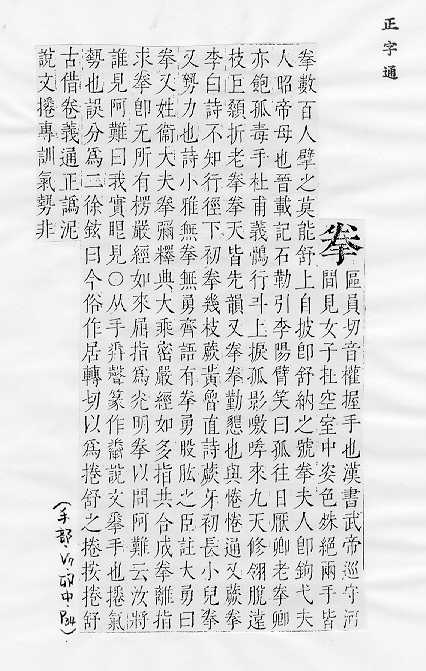 正字通
拳
區員切音權握手也漢書武帝巡守河
間見女子扗空室中姿色姝絕兩手皆
拳數百人擘之莫能舒上自披卽舒納之號拳夫人卽鉤弋夫
人昭帝母也晉載記石勒引李陽臂笑曰孤往日厭卿老拳卿
亦飽孤毒手杜甫義鶻行斗上捩孤影噭哮來九天修翎脫遠
枝巨顙折老拳拳天皆先韻又拳拳勤懇也與惓惓通又蕨拳
李白詩不知行徑下初拳幾枝蕨黃魯直詩蕨牙初長小兒拳
又勇力也詩小雅無拳無勇齊語有拳勇股肱之臣註大勇曰
拳又姓衞大夫拳彌釋典大乘密嚴經如多指共合成拳離指
求拳卽无所有楞嚴經如來屈指爲光明拳以問阿難云汝將
誰見阿難曰我實見○从手聲篆作說文手也捲氣
勢也誤分爲二徐鉉曰今俗作居轉切以爲捲舒之捲按捲舒
古借卷義通正譌泥
說文捲專訓氣勢非
(手部